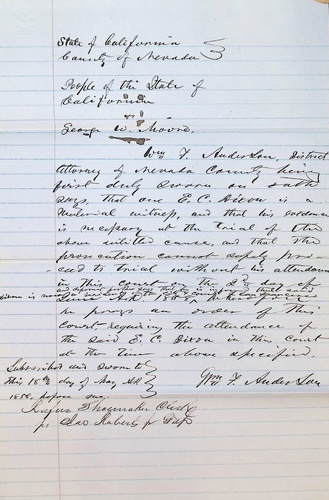 State of California
County of Nevada
People of the State of
California
vs
George W. Moore.
Wm F. Anderson, District
Attorney of Nevada County being
first duly sworn on oath
says, that one E. C. Dixon is a
material witness, and that his evidence
is necessary at the trial of the
above entitled cause, and that the
prosecution cannot safely pro-
ceed to trial without his attendance
in this Court on the day of
he prays an order of this
Court requiring the attendance of
the said E. C. Dixon in this Court
at the time above specified.
Subscribed and sworn to
this 18th day of May A.D.
before me.
Wm F. Anderson
Rufus Shoemaker Clerk
pr Jno Roberts Jr Dep